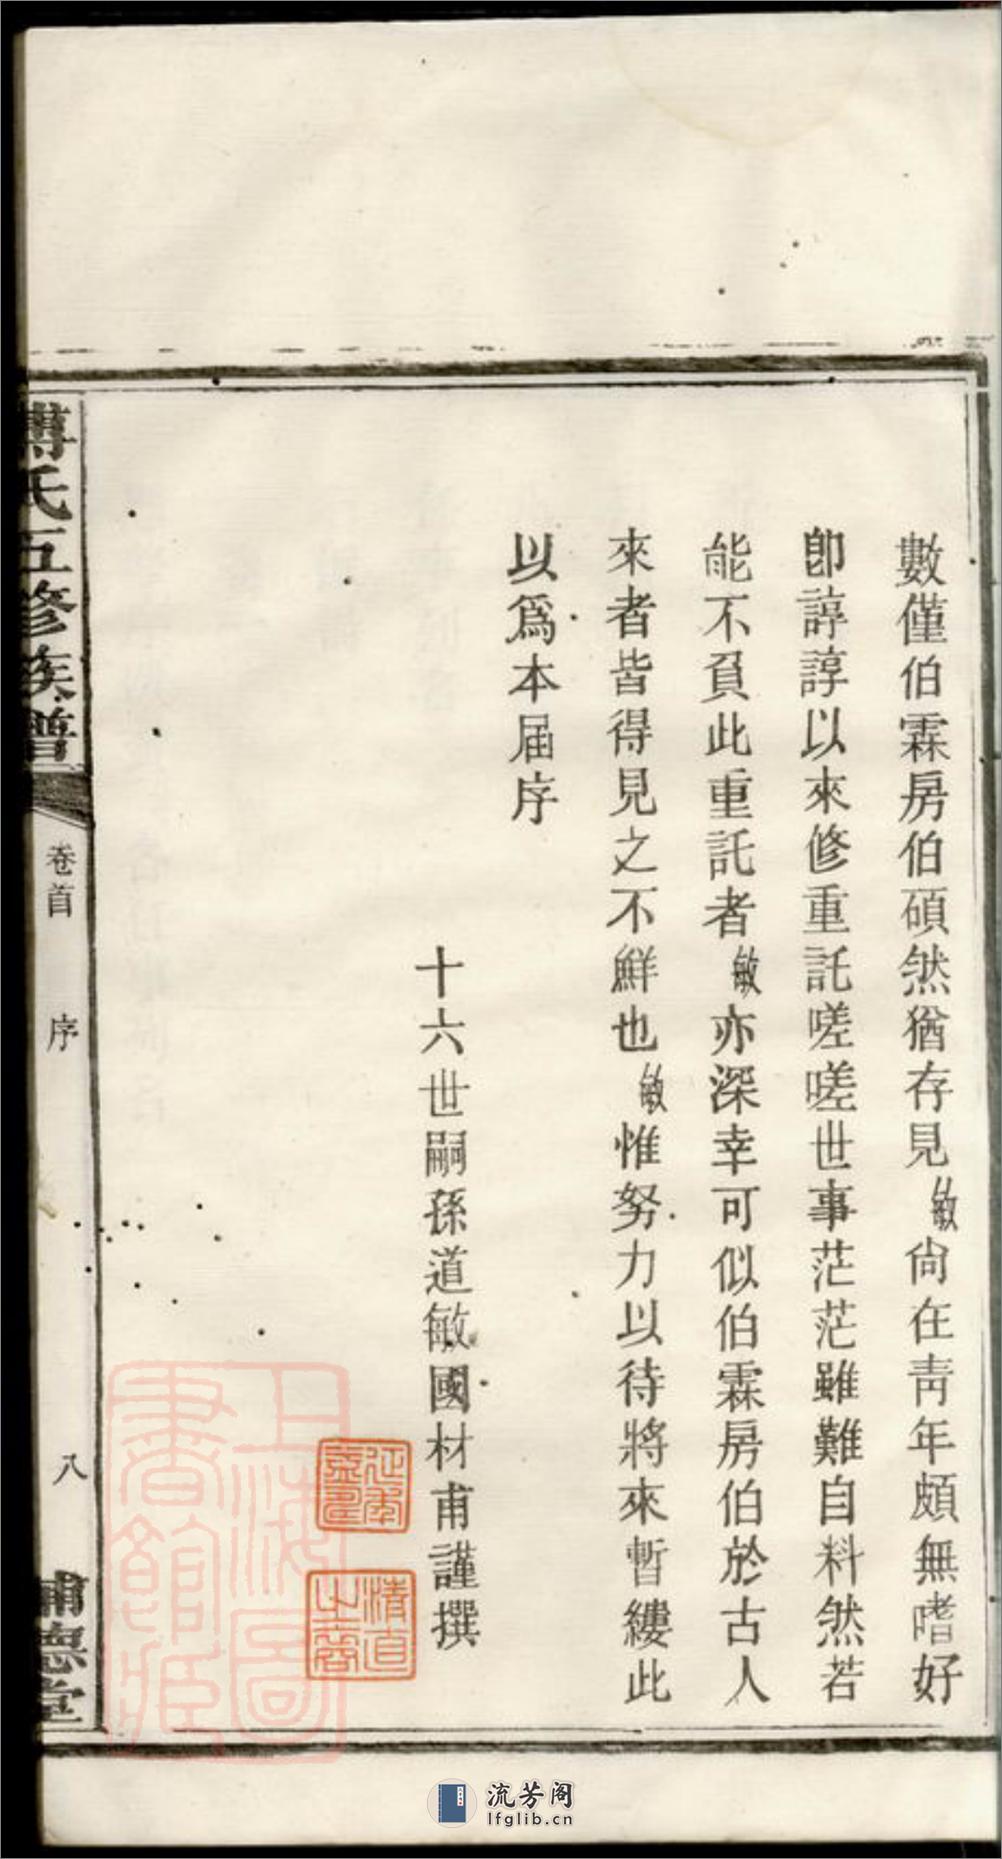 數僅伯霖房伯碩然猶存見敏尙在靑年頗無嗜好
卽諄諄以來修重託嗟嗟世事茫茫雖難自料然若
能不負此重託者敏亦深幸可似伯霖房伯於古人
來者皆得見之不鮮也敏惟努力以待將來暫縷此
以爲本届序
十六世嗣孫道敏國材甫謹撰
清直
上海圖
書館藏
氏五修族譜
卷首
序
八
德堂
流芳阁
lfglib.cn